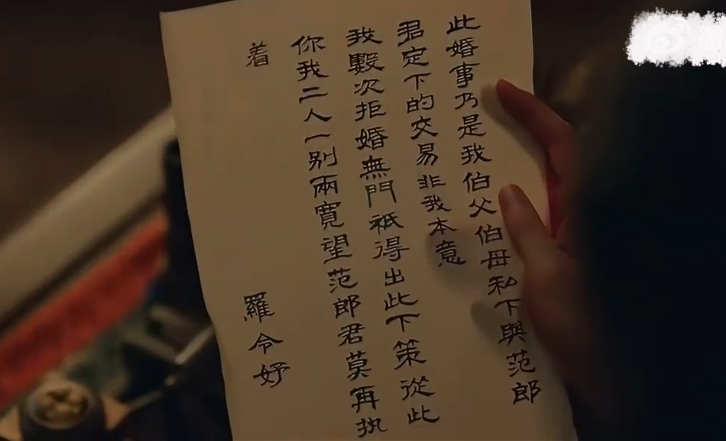 此婚事乃是我伯父伯母私下與范郎
君定下的交易非我本意
我數次拒婚無門祗得出此下策從此
你我二人一别兩寬望范郎君莫再执
着
羅令妤